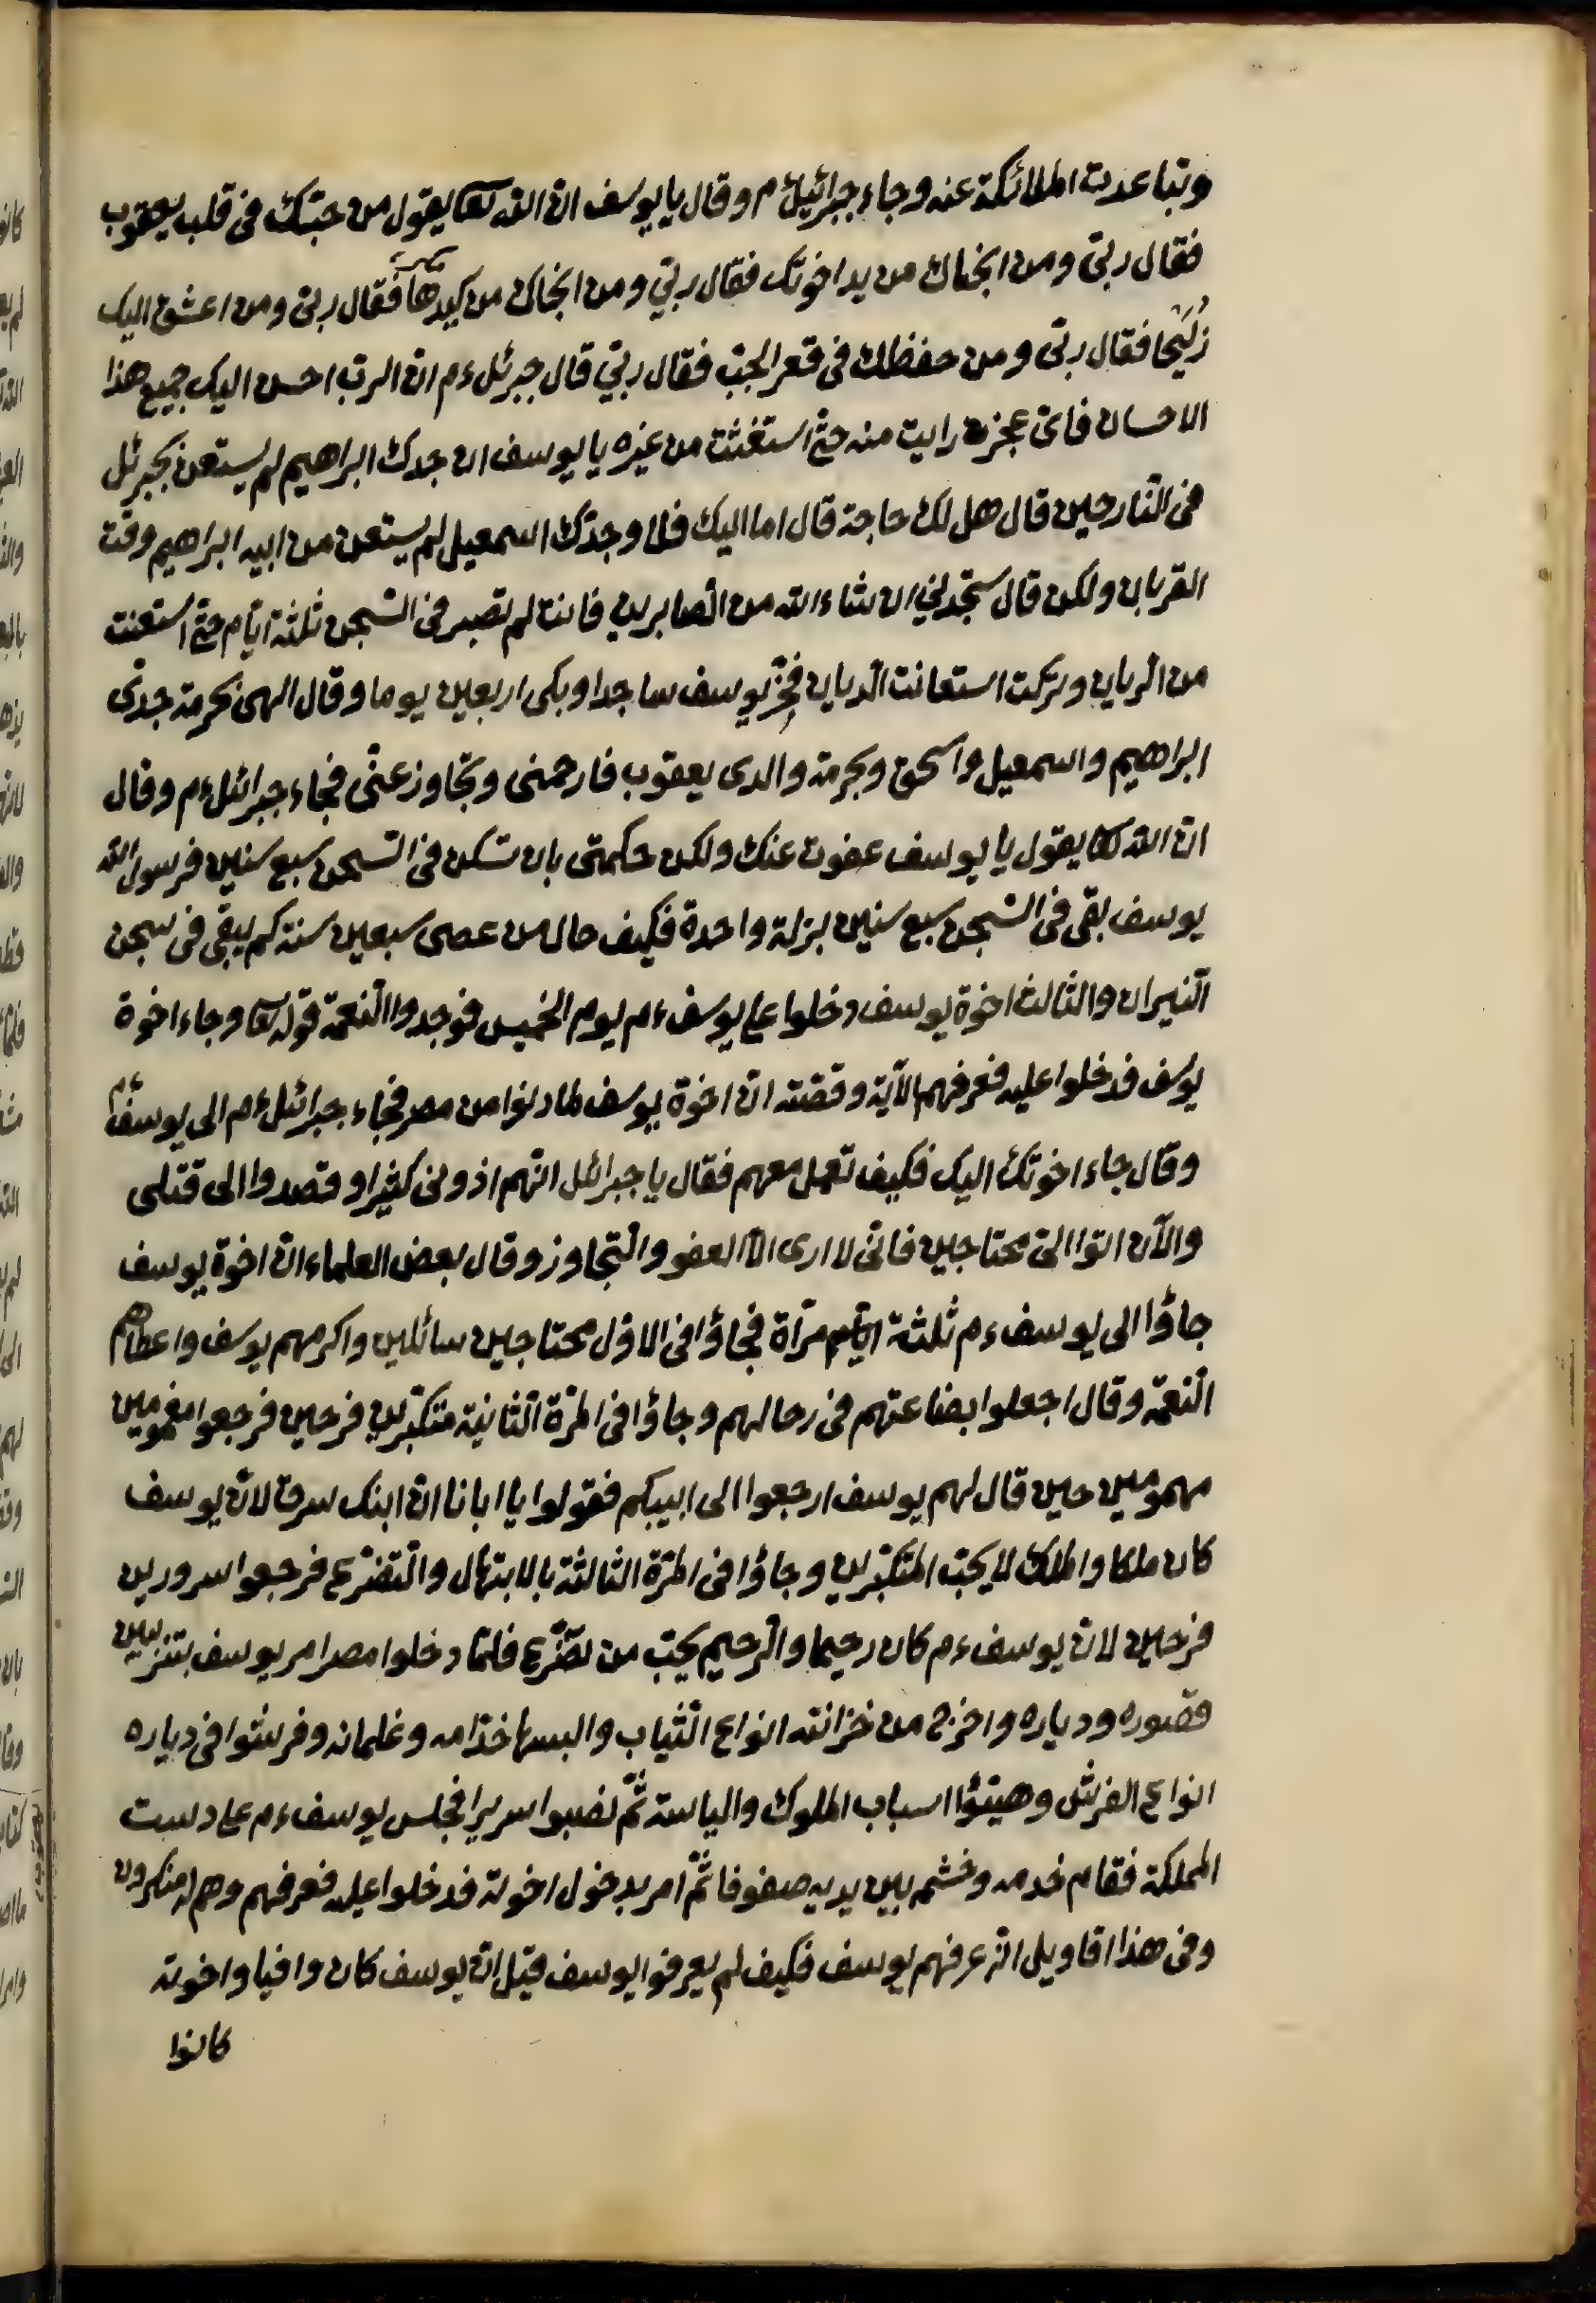 وتباعدت الملائكة عنه وجاء جبرائيل ءم وقال يا يوسف ان الله تعا يقول من حببك فى قلب يعقوب
فقال ربى ومن انجاك من يد اخوتك فقال ربي ومن انجاك من كيدها فقال ربى ومن اعشق اليك
زليخا فقال ربى ومن حفظك فى قعر الجب فقال ربي قال جبرئل ءم ان الرب احسن اليك جميع هذا
الاحسان فاى عجز رايت منه حتى استغثت من غيره يا يوسف ان جدك ابراهيم لم يستعن بجبرئل
فى النار حين قال هل لك حاجة قال اما اليك فلا وجدك اسمعيل لم يستعن من ابيه ابراهيم وقت
القربان ولكن قال ستجدني ان شاء الله من الصابرين فانت لم تصبر فى السجن ثلثة ايام حتى استعنت
من الريان وتركت استعانت الديان فخر يوسف ساجدا وبكى اربعين يوما وقال الهى بحرمة جدى
ابراهيم واسمعيل واسحق وبحرمة والدى يعقوب فارحمنى وتجاوز عنى فجاء جبرائل ءم وقال
ان الله تعا يقول يا يوسف عفوت عنك ولكن حكمتى بان تسكن فى السجن سبع سنين فرسول الله
يوسف بقى فى السجن سبع سنين بزلة واحدة فكيف حال من عصى سبعين سنة كم يبقى فى سجن
النيران والثالث اخوة يوسف دخلوا على يوسف ءم يوم الخميس فوجدوا النعمة قوله تعا وجاء اخوة
يوسف فدخلوا عليه فعرفهم الآية وقصته ان اخوة يوسف لما دنوا من مصر فجاء جبرائل ءم الى يوسف ءم
وقال جاء اخوتك اليك فكيف تعمل معهم فقال يا جبرائل انهم اذونى كثيرا وقصدوا الى قتلى
والآن اتوا الى محتاجين فانى لا ارى الا العفو والتجاوز وقال بعض العلماء ان اخوة يوسف
جاؤا الى يوسف ءم ثلثة مرآة فجاؤا فى الاول محتاجين سائلين واكرمهم يوسف واعطاهم
النعمة وقال اجعلوا بضاعتهم فى رحالهم وجاؤا فى المرة الثانية متكبرين فرحين فرجعوا مغمومين
مهمومين حين قال لهم يوسف ارجعوا الى ابيكم فقولوا يا ابانا ان ابنك سرق لان يوسف
كان ملكا والملك لا يحب المتكبرين وجاؤا فى المرة الثالثة بالابتهال والتضرع فرجعوا سرورين
فرحين لان يوسف ءم كان رحيما والرحيم يحب من تضرع فلما دخلوا مصر امر يوسف بتزيين
قصوره ودياره واخرج من خزانته انواع الثياب والبسها خدامه وغلمانه وفرشوا فى دياره
انواع الفرش وهيئوا اسباب الملوك والياسة ثم نصبوا سريرا فجلس يوسف ءم على دست
المملكة فقام خدمه وخشمه بين يديه صفوفا ثم امر بدخول اخوته فدخلوا عليه فعرفهم وهم له منكرون
وفى هذا اقاويل انه عرفهم يوسف فكيف لم يعرفوا يوسف قيل ان يوسف كان وافيا واخوته
كانوا